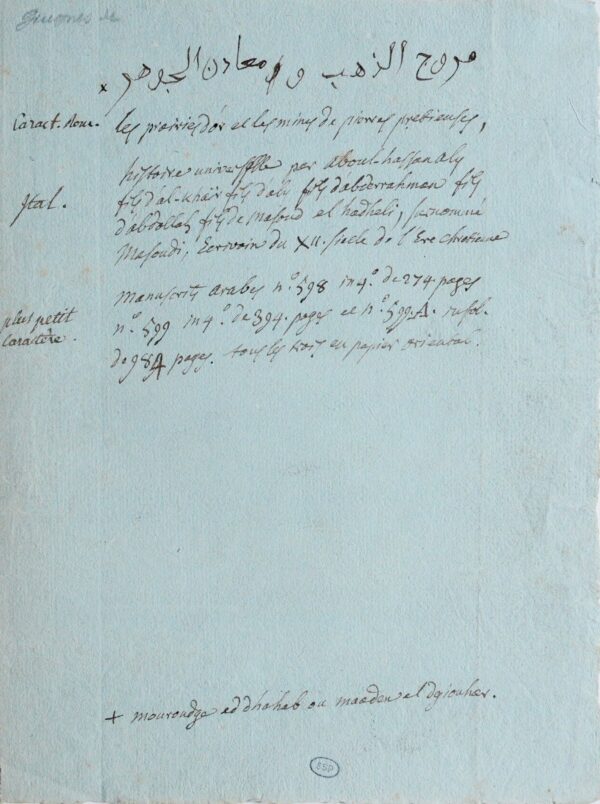 Guignes de
مروج الذهب و معادن الجوهر
x
Caract. Rom. Les prairies d'or et les mines de pierres pretieuses,
histoire universelle par aboul-hassan aly
Ital. fils d'al-khaïr fils d'aly fils d'abderrahman fils
d'abdallah fils de Masoud el hadheli, surnommé
Masoudi, Ecrivain du XII. siecle de l'Ere Chrétienne
Manuscrits arabes n.º 598 in 4.º de 274 pages
plus petit n.º 599 in 4.º de 394. pages et n.º 599.A. in fol.
Caractère. de 984 pages. tous les trois en papier oriental.
+ mouroudge ed dhaheb ou maaden el dgiouher.
SSP